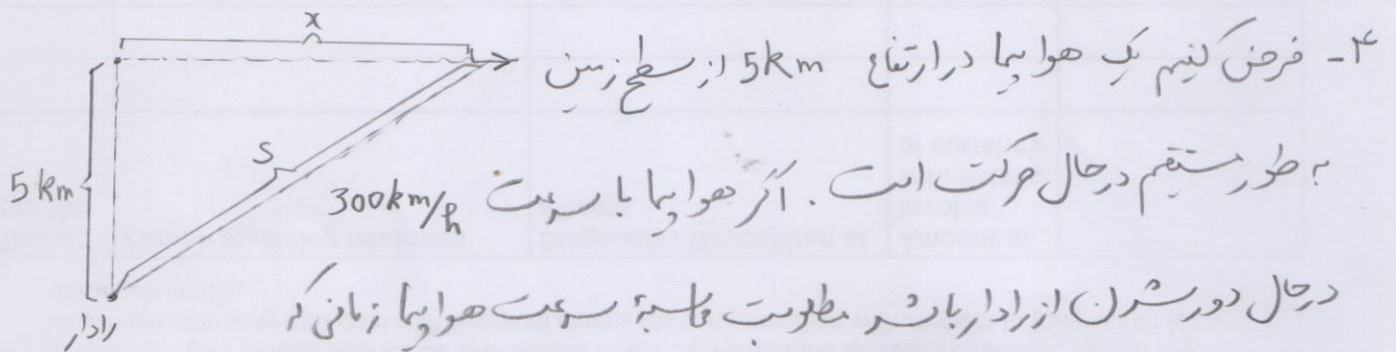 x
۴- فرض کنیم یک هواپیما در ارتفاع 5km از سطح زمین
5km
S
به طور مستقیم در حال حرکت است. اگر هواپیما با سرعت 300km/h
در حال دور شدن از رادار باشد مطلوبست محاسبهٔ سرعت هواپیما زمانی که
رادار